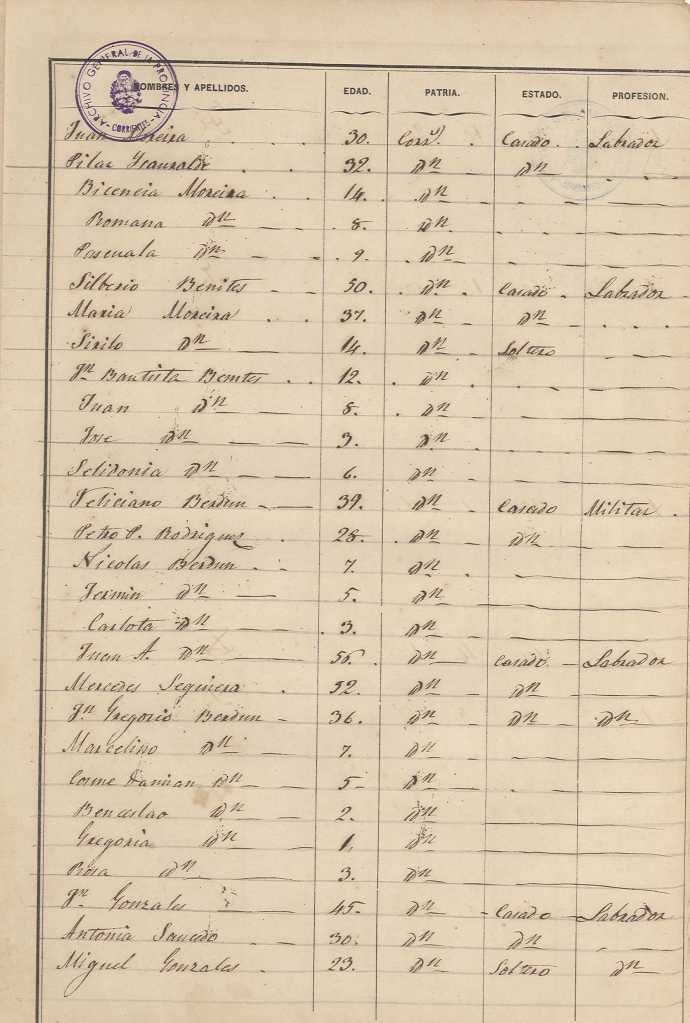 ARCHIVO GENERAL DE LA PROVINCIA
CORRIENTES
NOMBRES Y APELLIDOS. EDAD. PATRIA. ESTADO. PROFESION.
Juan Moreira 30. Corr.s Casado Labrador
Pilar 32. Dn Dn
Bicencia Moreira 14. Dn
Romana Dn 8. Dn
Pascuala Dn 9. Dn
Silberio Benites 50. Dn Casado Labrador
Maria Moreira 37. Dn Dn
Sirilo Dn 14. Dn Soltero
Jn Bautista Benites 12. Dn
Juan Dn 8. Dn
Jose Dn 3. Dn
Selidonia Dn 6. Dn
Feliciano Berdun 39. Dn Casado Militar
Petro P. Rodrigues 28. Dn Dn
Nicolas Berdun 7. Dn
Fermin Dn 5. Dn
Carlota Dn 3. Dn
Juan A. Dn Dn Casado Labrador
Mercedes 52. Dn Dn
Jn Gregorio Berdun 36. Dn Dn Dn
Marcelino Dn 7. Dn
Cosme Damian Dn 5 Dn
Benceslao Dn 2. Dn
Gregoria Dn 1. Dn
Rosa Dn 3. Dn
Jn Gonzales 45. Dn Casado Labrador
Antonia Saucedo 30. Dn Dn
Miguel Gonzales 23. Dn Soltero Dn